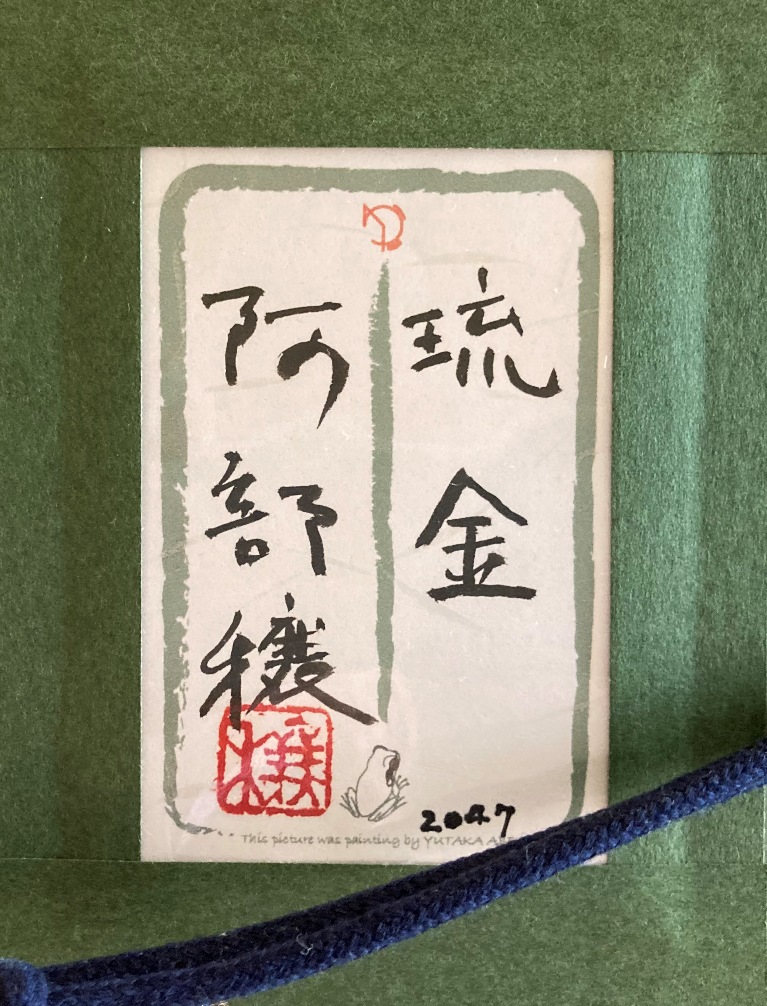 琉金
阿部穣
穣
2047
This picture was painting by YUTAKA A